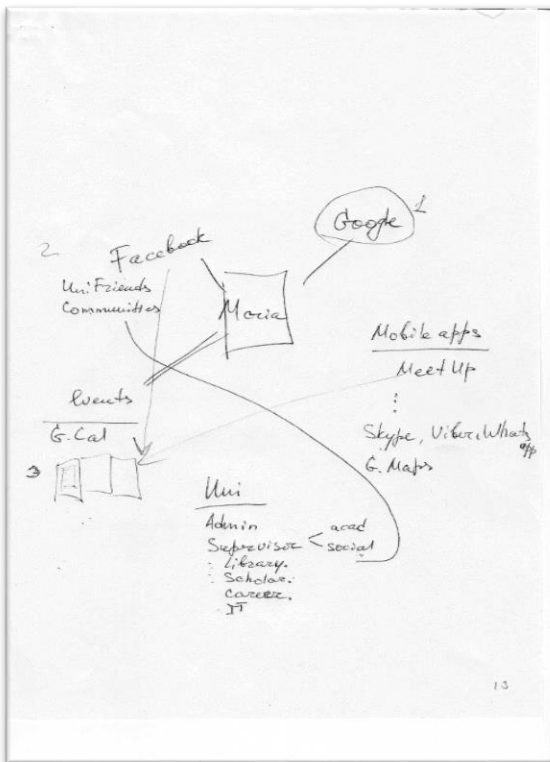 Google 1
2 Facebook
Uni Friends
Communities
Maria
Mobile apps
Meet Up
Skype, Viber, Whats
app
G. Maps
Events
G. Cal
3
Uni
Admin
Supervisor < acad
social
Library.
Scholar.
Career.
IT
13